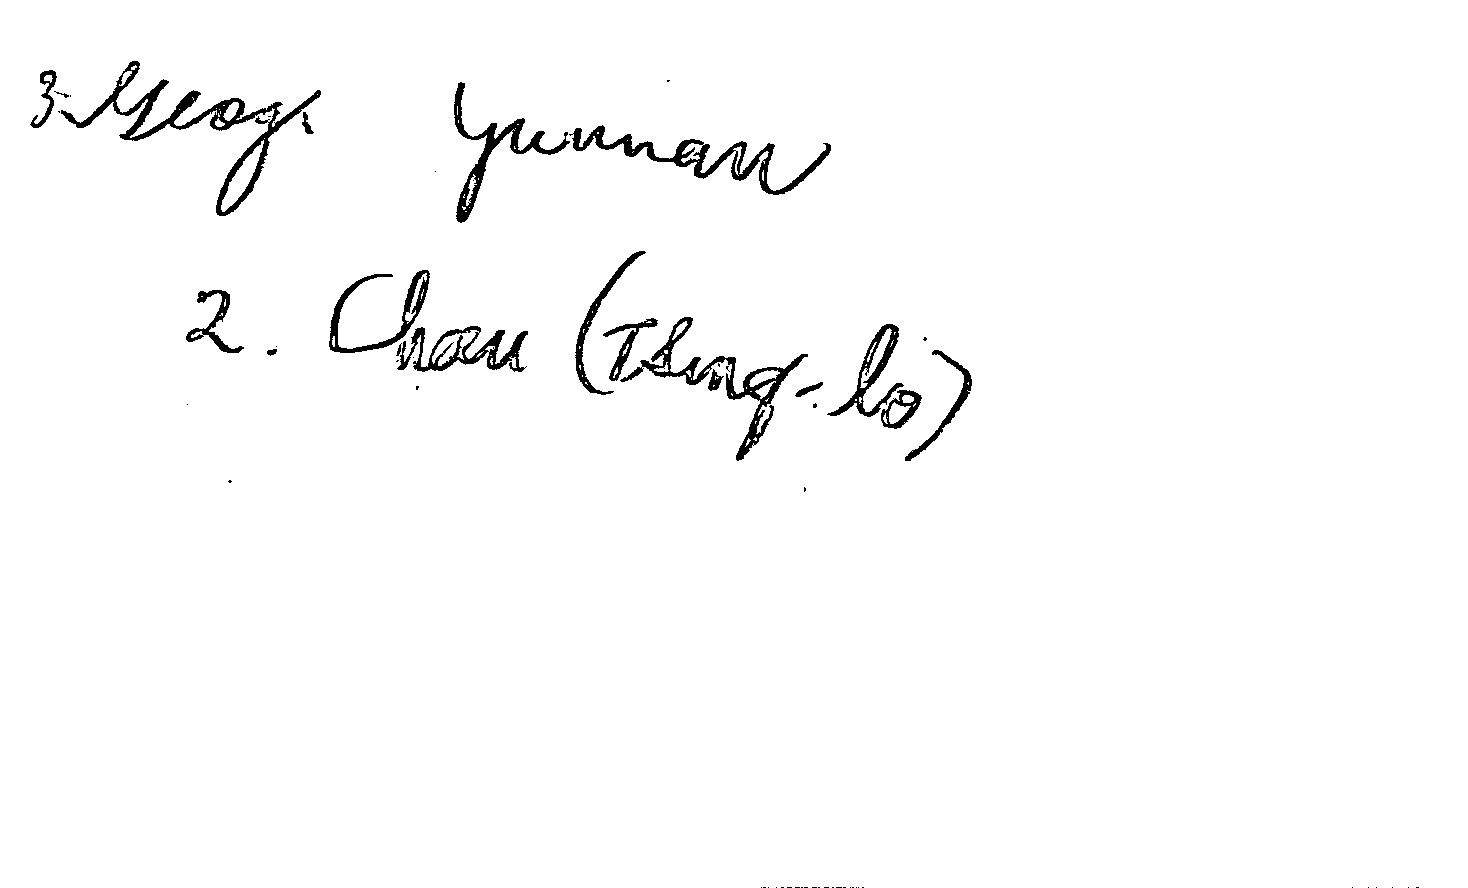 3. Geog. Yunnan
2. Chau (Tsing-lo)